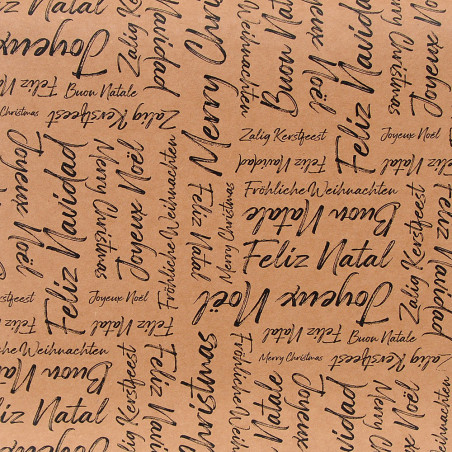 Joyeux
Zalig
Navidad
Weihnachten
Buon Natale
Feliz Navidad
Merry Christmas
Joyeux Noël
Feliz Natal
Buon Natale
Merry Christmas
Zalig Kerstfeest
Merry
Zalig Kerstfeest
Joyeux Noël
Feliz Navidad
Joyeux Noël
Feliz Navidad
Merry Christmas
Joyeux Noël
Fröhliche Weihnachten
Feliz Natal
Merry Christmas
Fröhliche Weihnachten
Buon Natale
Feliz Natal
Zalig Kerstfeest
Feliz Navidad
Zalig Kerstfeest
Joyeux Noël
Joyeux Noël
Feliz Natal
Feliz Natal
Buon Natale
Fröhliche Weihnachten
Merry Christmas
Zalig Kerstfeest
Buon Natale
Feliz Natal
Zalig Kerstfeest
Feliz Navidad
Christmas
Fröhliche Weihnachten
Natale
Joyeux
Navidad
Merry Christmas